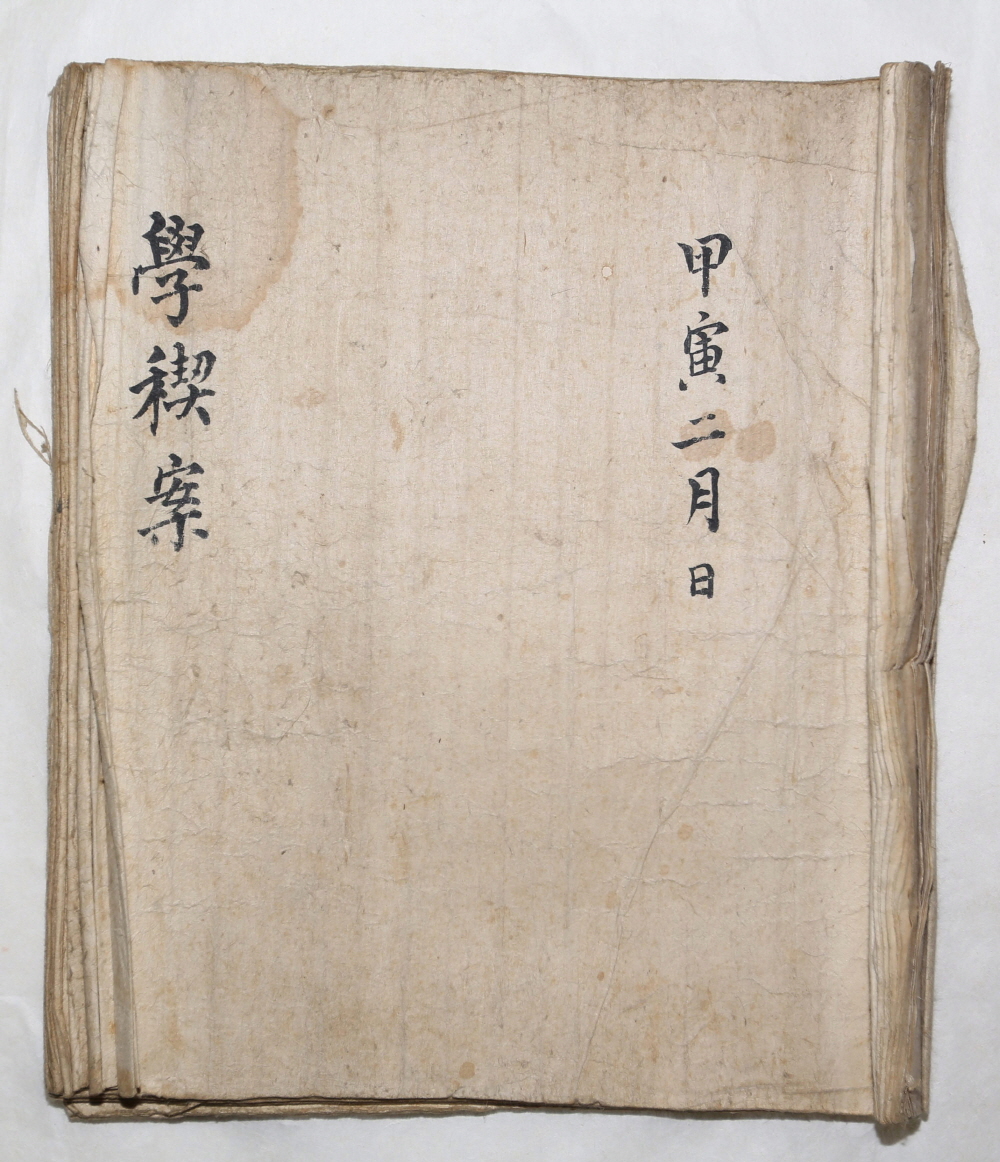 甲寅二月日
學稧案